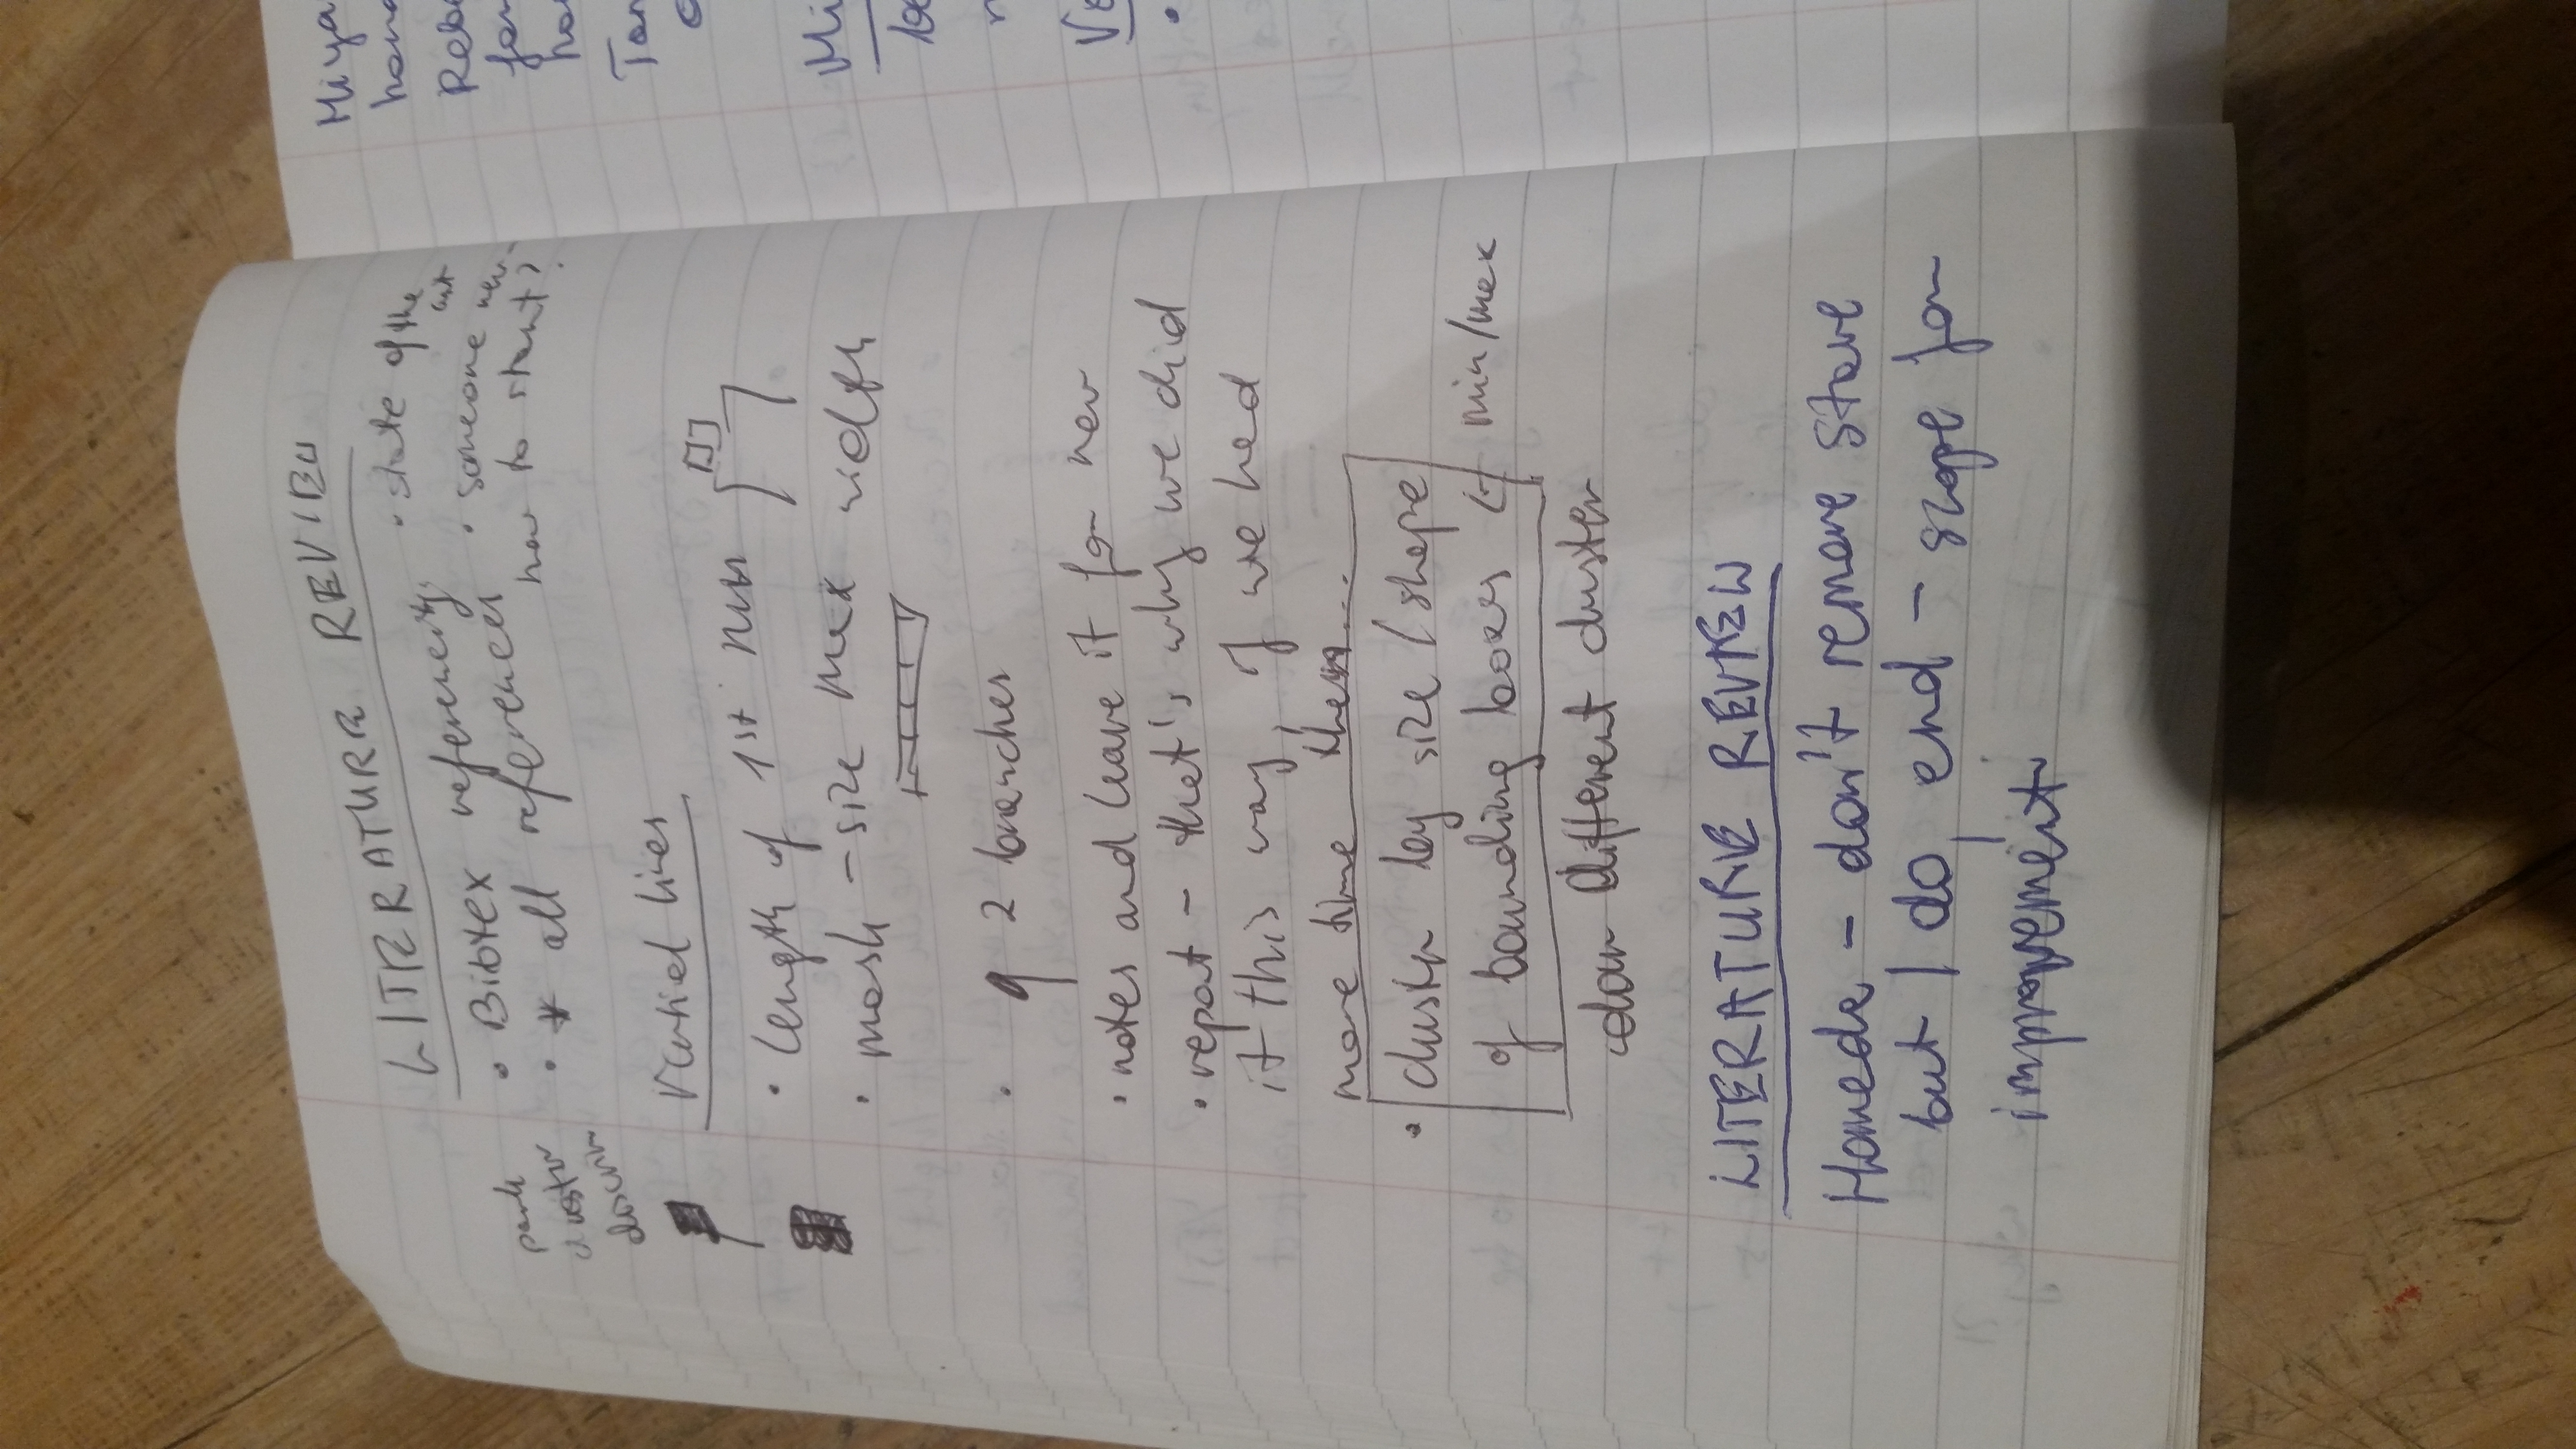 LITERATURE REVIEW
• Bibtex referencing
• all references
• state of the
art
• someone new -
how to start?
cluster
Vertical lines
• length of 1st run
• mask - size max width
• 2 branches
• notes and leave it for now
• report - that's why we did
it this way, if we had
more time then...
• cluster by size / shape
of bounding boxes ← min/max
color different cluster
LITERATURE REVIEW
Homeda - don't remove stave
but I do, end - scope for
improvement
Miya
Reb
for
Tan
Mi